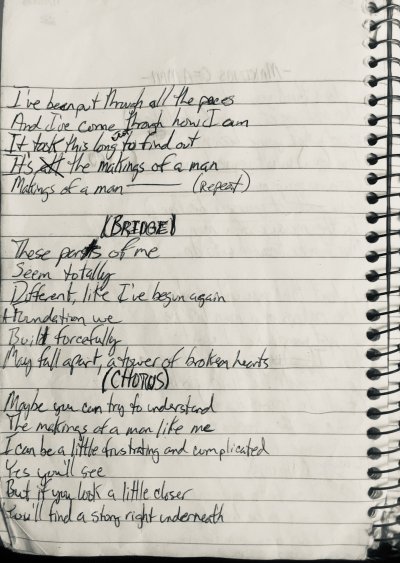 I've been put through all the paces
And I've come through how I am
It took this long just to find out
It's the makings of a man
Makings of a man —— (Repeat)
(BRIDGE)
These parts of me
Seem totally
Different, like I've begun again
Foundation we
Built forcefully
May fall apart, a tower of broken hearts
(CHORUS)
Maybe you can try to understand
The makings of a man like me
I can be a little frustrating and complicated
Yes you'll see
But if you look a little closer
You'll find a story right underneath